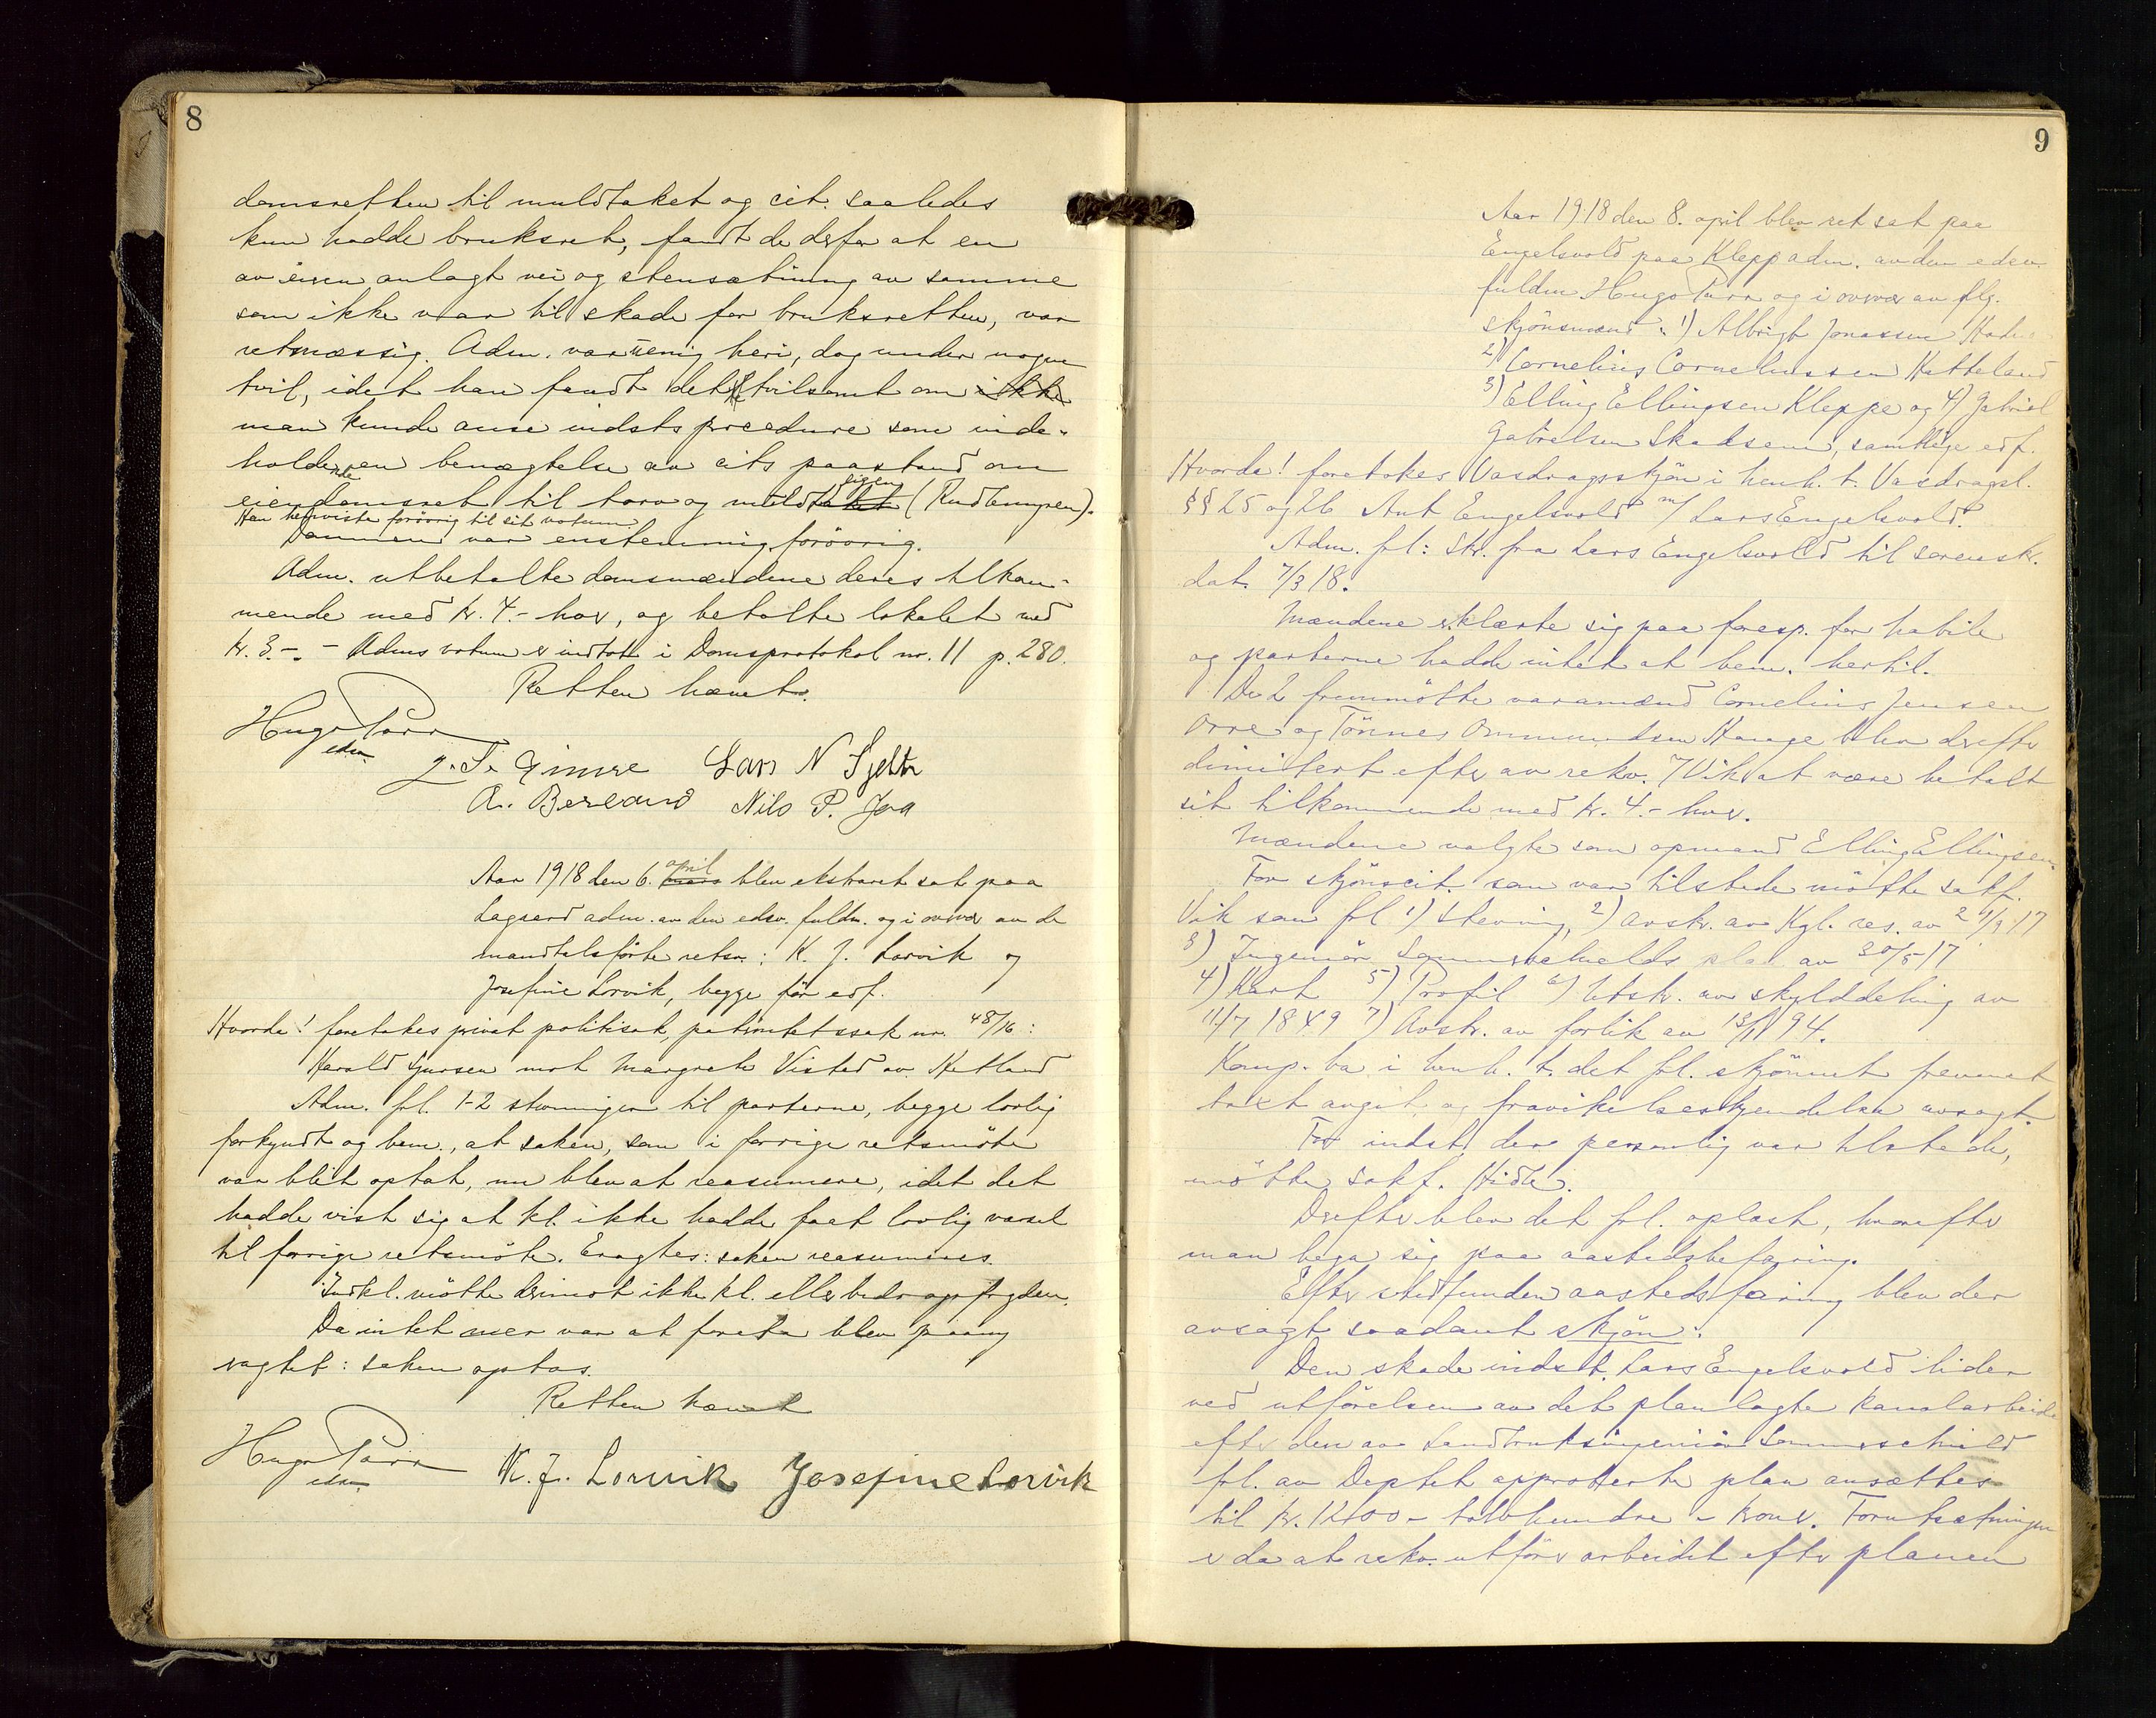 8
domsretten til muldtaket og cit. saaledes
kun hadde bruksret, fandt de derfor at en
av eieren anlagt vei og stensætning av samme
som ikke var til skade for bruksretten, var
retmæssig. Adm. var enig heri, dog under nogen
tvil, idet han fandt det tvilsomt om ikke
man kunde anse indsts procedure som inde-
holdende en benægtelse av cits paastand om
eiendomsret til torv og muldtaket eigen (Rudlempen).
Han henviste forövrig til sit votum.
Dommen var enstemmig forövrig.
Adm. utbetalte domsmændene deres tilkom-
mende med kr. 4.- hver, og betalte lokalet med
kr. 3.-. - Adms votum er indtat i Domsprotokol nr. 11 p. 280.
Retten hævet.
Hugo Parr
edsv.
J. S. Gimre Lars N Tjelta
A. Berland Nils P. Joa
Aar 1918 den 6. mars april blev ekstraret sat paa
Lagerd adm. av den edsv. fuldm. og i overvær av de
mandtalsförte retsv.: K. J. Lorvik og
Josefine Lorvik, begge för edf.
Hvorda! foretakes privat politisak, paternitetssak nr. 48/16:
Harald Sjursen mot Margrete Visted av Hetland
Adm. frl. 1-2 stevninger til parterne, begge lovlig
forkyndt og bem., at saken, som i forrige retsmöte
var blit optat, nu blev at reasumere, idet det
hadde vist sig at kl. ikke hadde faat lovlig varsel
til forrige retsmöte. Eragtes: saken reasumeres.
Indkl. mötte derimot ikke kl. eller bidragsfogden.
Da intet mer var at foreta blev paany
eragtet: saken optas.
Retten hævet
Hugo Parr
edsv.
K. J. Lorvik Josefine Lorvik
9
Aar 1918 den 8. april blev ret sat paa
Engelsvold paa Klepp adm. av den edsv.
fuldm Hugo Parr og i overvær av flg.
skjönsmænd: 1) Albrigt Jonassen
2) Cornelius Corneliussen Hatteland
3) Elling Ellingsen Kleppe og 4) Gabriel
Gabrielsen Skadsem, samtlige edf.
Hvorda! foretakes Vasdragsskjön i henh. t. Vasdragsl.
§§ 25 og 26 Ant Engelsvold m/ Lars Engelsvold.
Adm. frl: Skr. fra Lars Engelsvold til sorenskr.
dat. 7/3 18.
Mændene erklærte sig paa foresp. for habile
og parterne hadde intet at bem. hertil.
De 2 fremmötte varamænd Cornelius Jensen
Orre og Tönnes Ommundsen Hauge blev derefter
dimitert efter av rekv. v/Vik at være betalt
sit tilkommende med kr. 4.- hver.
Mændene valgte som opmand Elling Ellingsen
For skjönscit. som var tilstede mötte sakf.
Vik som frl 1) Stevning, 2) avskr. av Kgl. res. av 21/9 17
3) Ingeniör Sommerschields plan av 30/5-17
4) Kart 5) Profil 6) Utskr. av skylddeling av
11/7 1849 7) Avskr. av forlik av 13/11 94.
Komp. ba i henh. t. det frl. skjönnet fremmet
takst avgit og fravikelseskjendelse avsagt.
For indst. der personlig var tilstede,
mötte sakf. Hidle.
Derefter blev det frl. oplæst, hvorefter
man bega sig paa aastedsbefaring.
Efter stedfunden aastedsfaring blev der
avsagt saadant skjön:
Den skade indst. Lars Engelsvold lider
ved utförelsen av det planlagte kanalarbeide
efter den av Landbruksingeniör Sommerschield
frl. av Deptet approberte plan ansættes
til kr. 1200 - tolvhundre - kroner. Forutsætningen
er da at rekv. utförer arbeidet efter planen